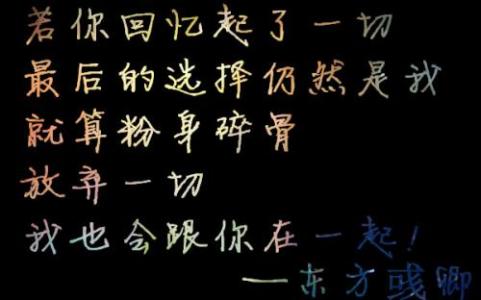 若你回忆起了一切
最后的选择仍然是我
就算粉身碎骨
放弃一切
我也会跟你在一起！
——东方彧卿